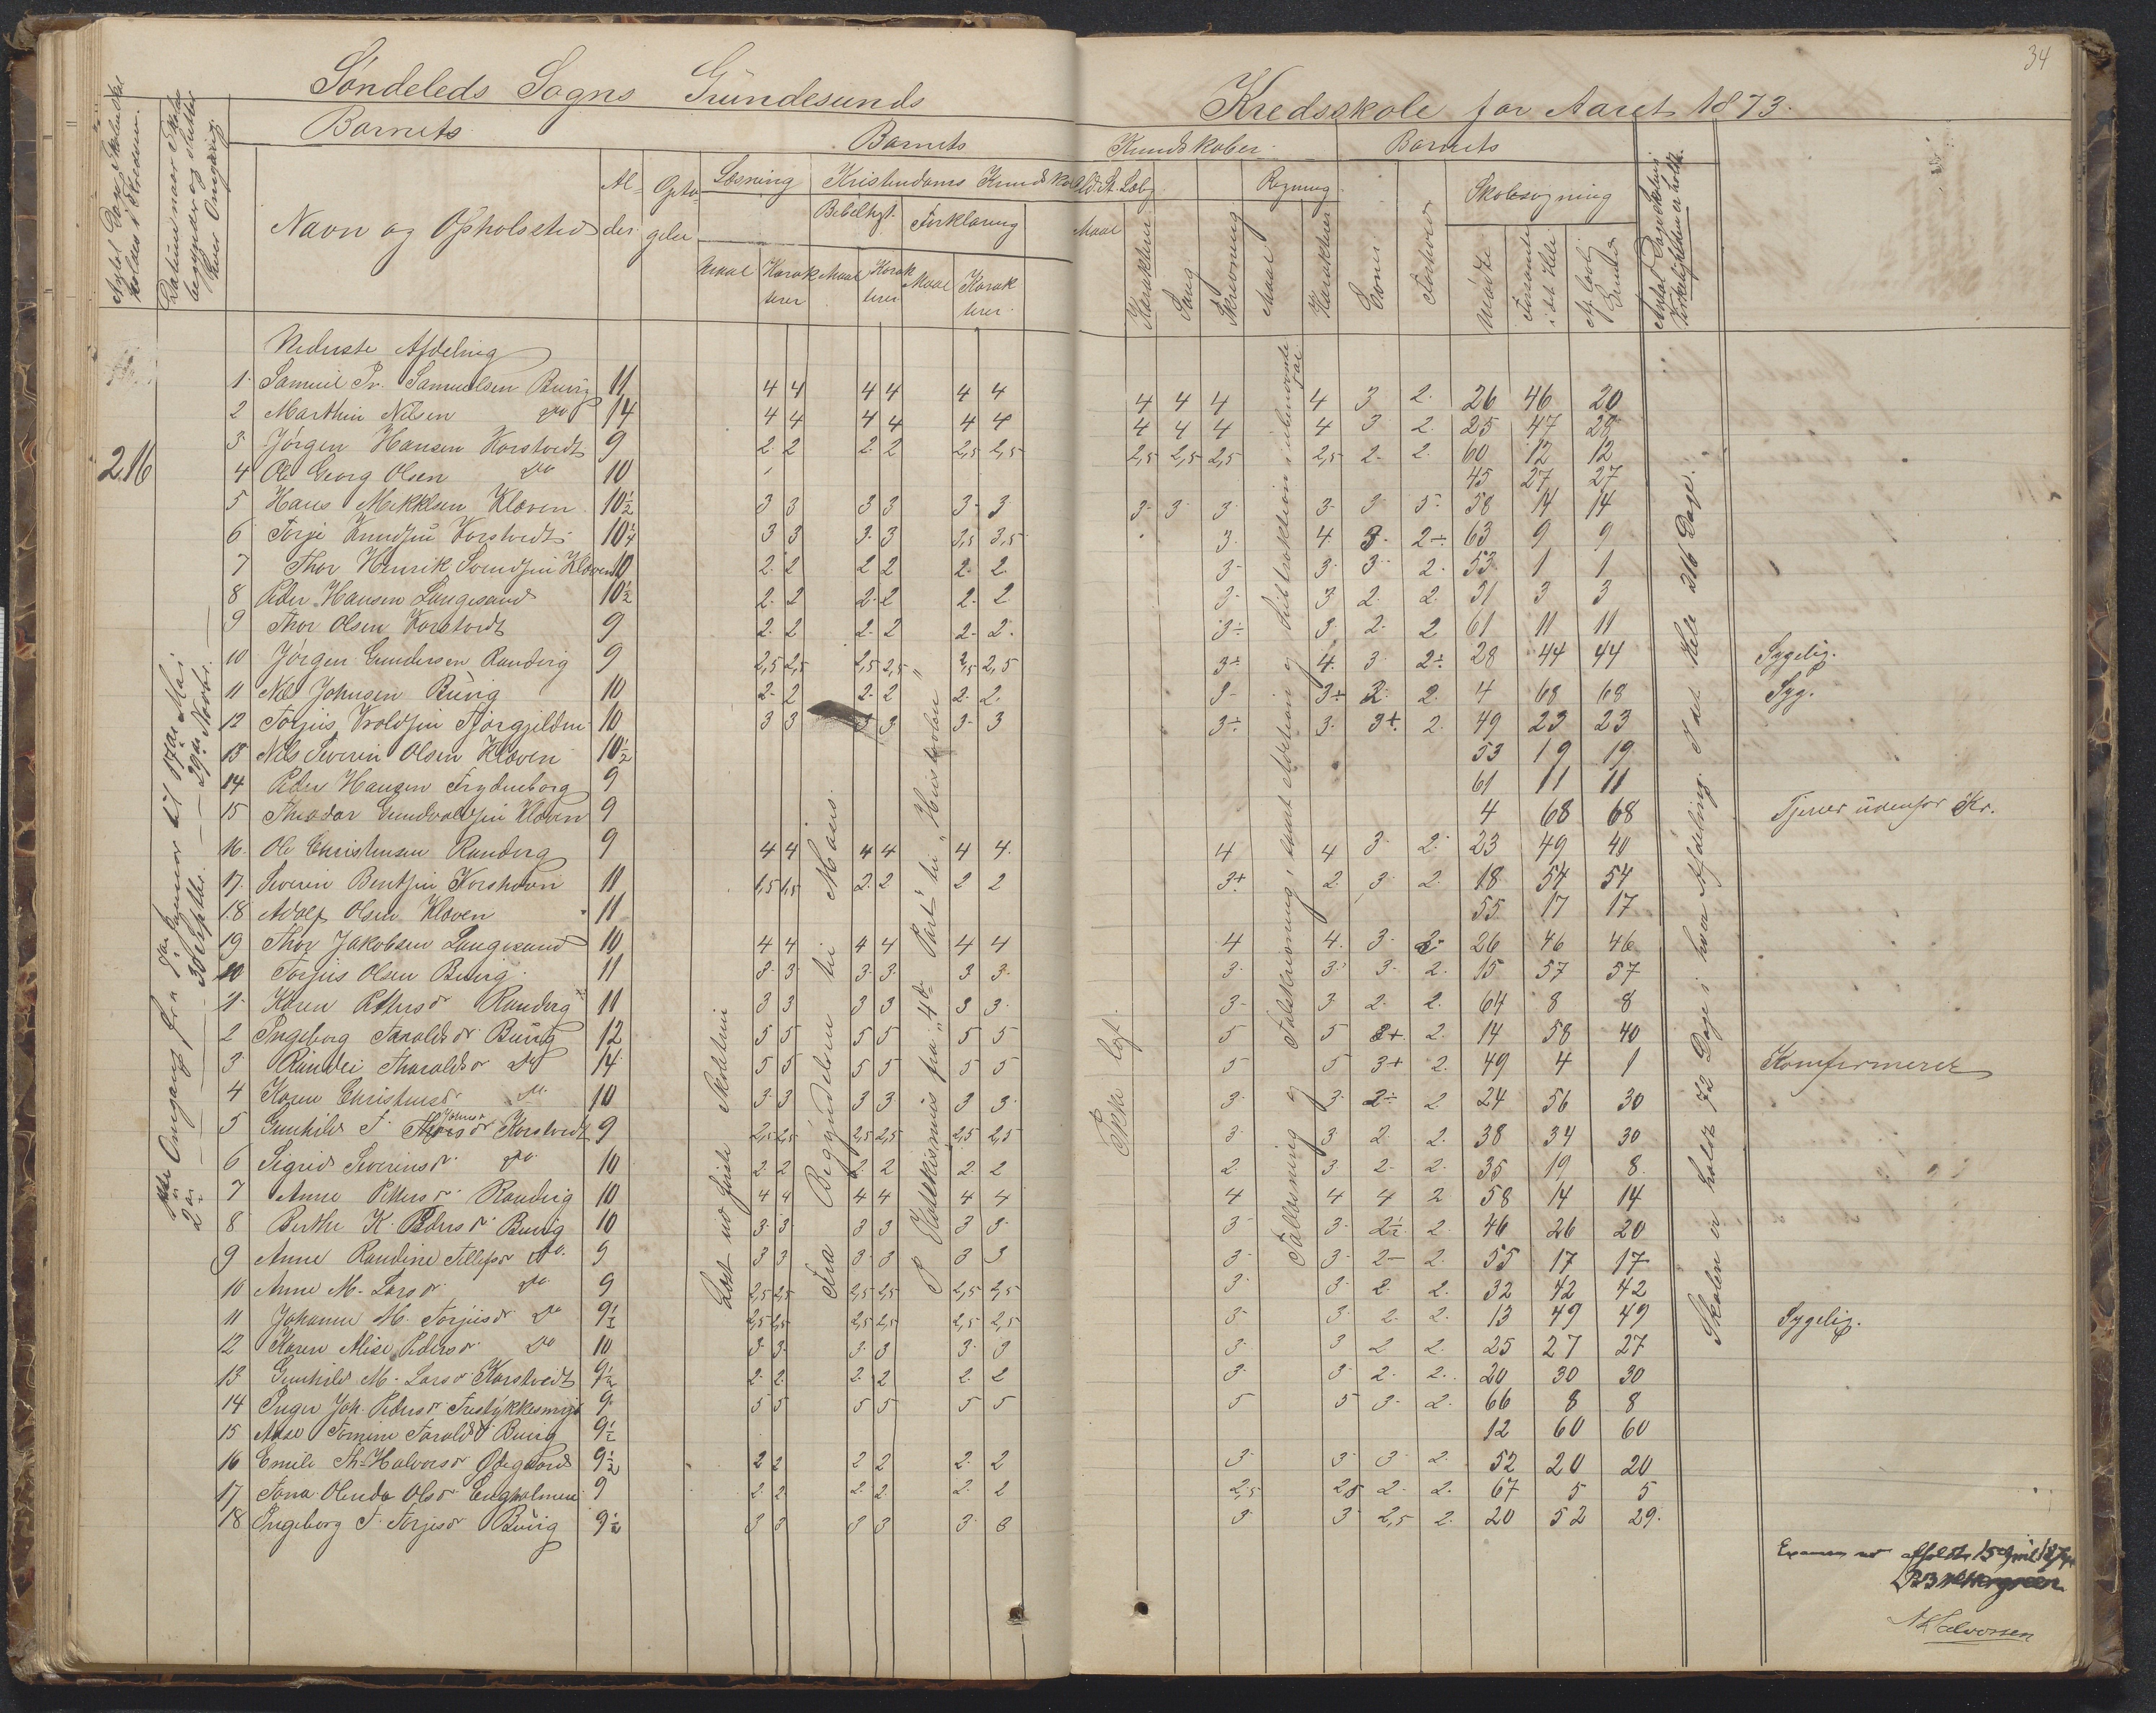 34
Søndeleds Sogns Gründesunds Kredsskole for Aaret 1873.
Barnets Barnets Kundskaber Barnets
Antal Dage Skolen skal holdes i Kredsen.
Datum naar Skolen begynder og slutter hver Omgang.
Navn og Opholdssted Alder Læsning Kristendoms Kundskab Regning Skolesøgning
Bibelhist. Forklaring
Maal Karakterer Maal Karakterer Maal Karakterer Maal Karakterer Sang Skrivning Maal Karakterer Evner Forhold Mødte Forsømte i det Hele Af lovl. Grunde
Nederste Afdeling
216
1 Samuel Pr. Samuelsen Buvig 11 4 4 4 4 4 4 4 4 4 4 3 2. 26 46 20
2 Marthin Nilsen do 14 4 4 4 4 4 4 4 4 4 4 3 2. 25 47 28
3 Jørgen Hansen Korstvedt 9 2 2 2 2 2,5 2,5 2,5 2,5 2,5 2,5 2 2. 60 12 12
4 Ole Georg Olsen do 10 45 27 27
5 Hans Mikkelsen Kloven 10½ 3 3 3 3 3 3 3 3 3 3 3 5 58 14 14
6 Terje Knudsen Korstvedt 10¼ 3 3 3 3 3,5 3,5 3 4 3 2÷ 63 9 9
7 Thor Henrik Svendsen Kloven 10 2 2 2 2 2 2 3 3 3 2. 53 1 1
8 Peder Hansen Langesand 10½ 2 2 2 2 2 2 3 3 2 2 31 3 3
9 Thor Olsen Korstvedt 9 2 2 2 2 2 2 3÷ 3 2 2 61 11 11
10 Jørgen Gundersen Randvig 9 2,5 2,5 2,5 2,5 2,5 2,5 3÷ 4 3 2÷ 28 44 44 Sygelig.
11 Nils Johnsen Buvig 10 2 2 2 2 2 2 3 3÷ 2 2. 4 68 68 Syg.
12 10 3 3 3 3 3 3 3÷ 3 3+ 2. 49 23 23
13 Nils Severin Olsen Kloven 10½ 53 19 19
14 Peder Hansen Frydenborg 9 61 11 11
15 Theodor Gundvaldsen Kloven 9 4 68 68 Tjener udenfor Kr.
16 Ole Christensen Randvig 9 4 4 4 4 4 4 4 4 3 2 23 49 40
17 Severin Bentsen Korshavn 11 1,5 1,5 2 2 2 2 3+ 2 3 2 18 54 54
18 Adolf Olsen Kloven 11 55 17 17
19 Thor Jakobsen Langesand 10 4 4 4 4 4 4 4 4 3 2 26 46 46
20 Torjus Olsen Buvig 11 3 3 3 3 3 3 3 3 3 2. 15 57 57
1 Karen Pettersdr Randvig 11 3 3 3 3 3 3 3 3 2 2. 64 8 8
2 Ingeborg Taraldsdr Buvig 12 5 5 5 5 5 5 5 5 3+ 2. 14 58 40
3 Randei Tharaldsdr do 14 5 5 5 5 5 5 5 5 3+ 2. 49 4 1 Konfirmeret
4 Karen Christensdr do 10 3 3 3 3 3 3 3 3 2÷ 2 24 56 30
5 Gunhild T. Johnsdr Korstvedt 9 2,5 2,5 2,5 2,5 2,5 2,5 3 3 2 2. 38 34 30
6 Sigrid Severinsdr do 10 2 2 2 2 2 2 2 3 2 2. 35 19 8
7 Anne Pettersdr Randvig 10 4 4 4 4 4 4 4 4 4 2 58 14 14
8 Berthe K. Pedersdr Buvig 10 3 3 3 3 3 3 3 3 2½ 2. 46 26 20
9 Anne Randine Allefsdr do. 9 3 3 3 3 3 3 3 3 2 2. 55 17 17
10 Anne M. Larsdr do 9 2,5 2,5 2,5 2,5 2,5 2,5 3 3 2 2. 32 42 42
11 Johanne M. Torjusdr do 9½ 2,5 2,5 2,5 2,5 2,5 2,5 3 3 2 2. 13 49 49 Sygelig.
12 Karen Alise Pedersdr do 10 3 3 3 3 3 3 3 3 2 2. 25 27 27
13 Gunhild M. Larsdr Korstvedt 9½ 2 2 2 2 2 2 3 3 2 2. 20 30 30
14 Inger Joh. Pedersdr 9 5 5 5 5 5 5 5 5 3 2. 66 8 8
15 Aase Tomine Taraldsdr Buvig 9½ 12 60 60
16 Emilie Th. Halvorsdr Ødegaard 9½ 2 2 2 2 2 2 3 3 3 2. 52 20 20
17 Tona Olenda Olsdr Engholmen 9 2 2 2 2 2 2 2,5 2,5 2 2. 67 5 5
18 Ingeborg T. Terjesdr Buvig 9½ 3 3 3 3 3 3 3 3 2,5 2. 20 52 29.
1ste Omgang fra 7de Januar til 17de Mai
2den — 30 Septbr. — 29de Novbr.
Læst ud første Skoletrin
Fra Begyndelsen til Moses.
P Katekismus fra "4de Part" til "Hustavlen"
Ikke lagt.
Tallæsning og Talskrivning, samt Addition og Subtraktion i ubenævnte Tal.
Skolen er holdt 72 Dage i hver Afdeling. I det Hele 216 Dage.
Examen afholdt 15 April 1874
N Halvorsen